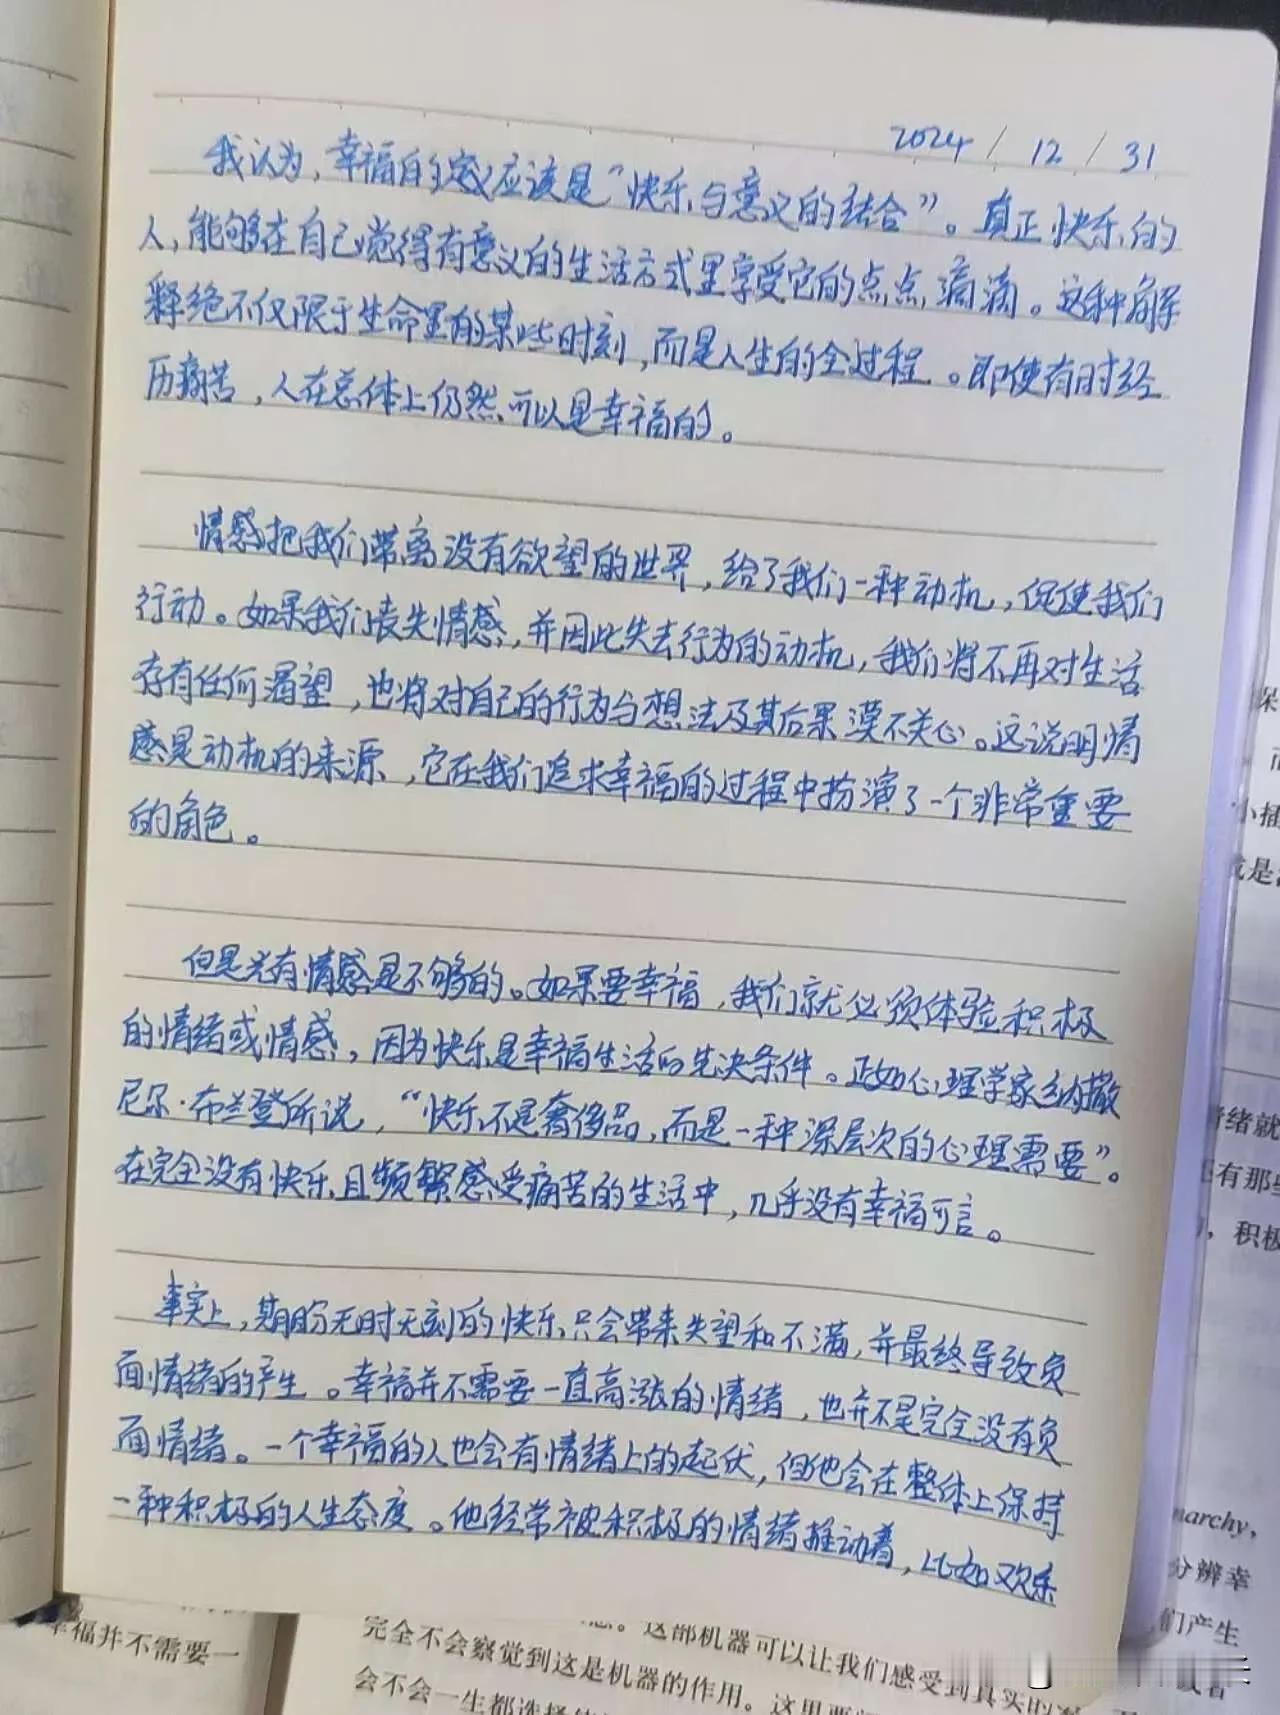 2024 / 12 / 31
我认为，幸福的定义应该是“快乐与意义的结合”。真正快乐的
人，能够在自己觉得有意义的生活方式里享受它的点点滴滴。这种解
释绝不仅限于生命里的某些时刻，而是人生的全过程。即使有时经
历痛苦，人在总体上仍然可以是幸福的。
情感把我们带离没有欲望的世界，给了我们一种动机，促使我们
行动。如果我们丧失情感，并因此失去行为的动机，我们将不再对生活
存有任何渴望，也将对自己的行为与想法及其后果漠不关心。这说明情
感是动机的来源，它在我们追求幸福的过程中扮演了一个非常重要
的角色。
但是光有情感是不够的。如果要幸福，我们就必须体验积极
的情绪或情感，因为快乐是幸福生活的先决条件。正如心理学家纳撒
尼尔·布兰登所说，“快乐不是奢侈品，而是一种深层次的心理需要”。
在完全没有快乐且频繁感受痛苦的生活中，几乎没有幸福可言。
事实上，期盼无时无刻的快乐只会带来失望和不满，并最终导致负
面情绪的产生。幸福并不需要一直高涨的情绪，也并不是完全没有负
面情绪。一个幸福的人也会有情绪上的起伏，但他会在整体上保持
一种积极的人生态度。他经常被积极的情绪推动着，比如欢乐
小插
或是
情绪就
还有那些
，积极
narchy,
分辨幸
们产生
或者
幸福并不需要一
。这部机器可以让我们感受到真实的
完全不会察觉到这是机器的作用。这里要
会不会一生都选择